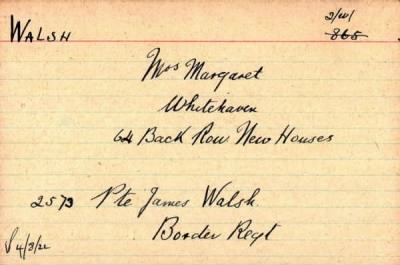 WALSH
865
Mrs Margaret
Whitehaven
64 Back Row New Houses
2573 Pte James Walsh.
Border Regt
4/3/22